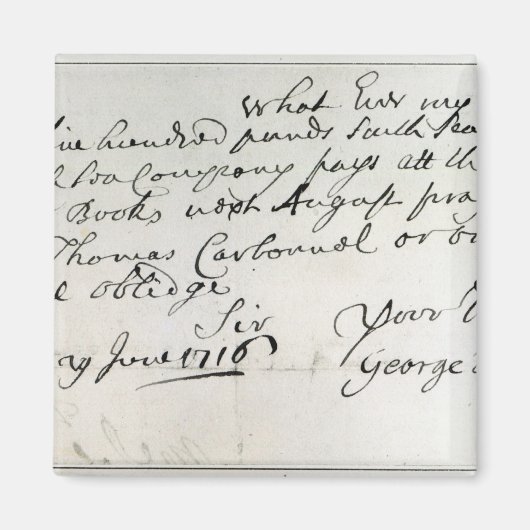 What Ever my
five hundred pounds South Sea
South Sea Company pays att th
Books next August pray
Thomas Carbonnel or
e obliedge
Sir Your
29 June 1716 George